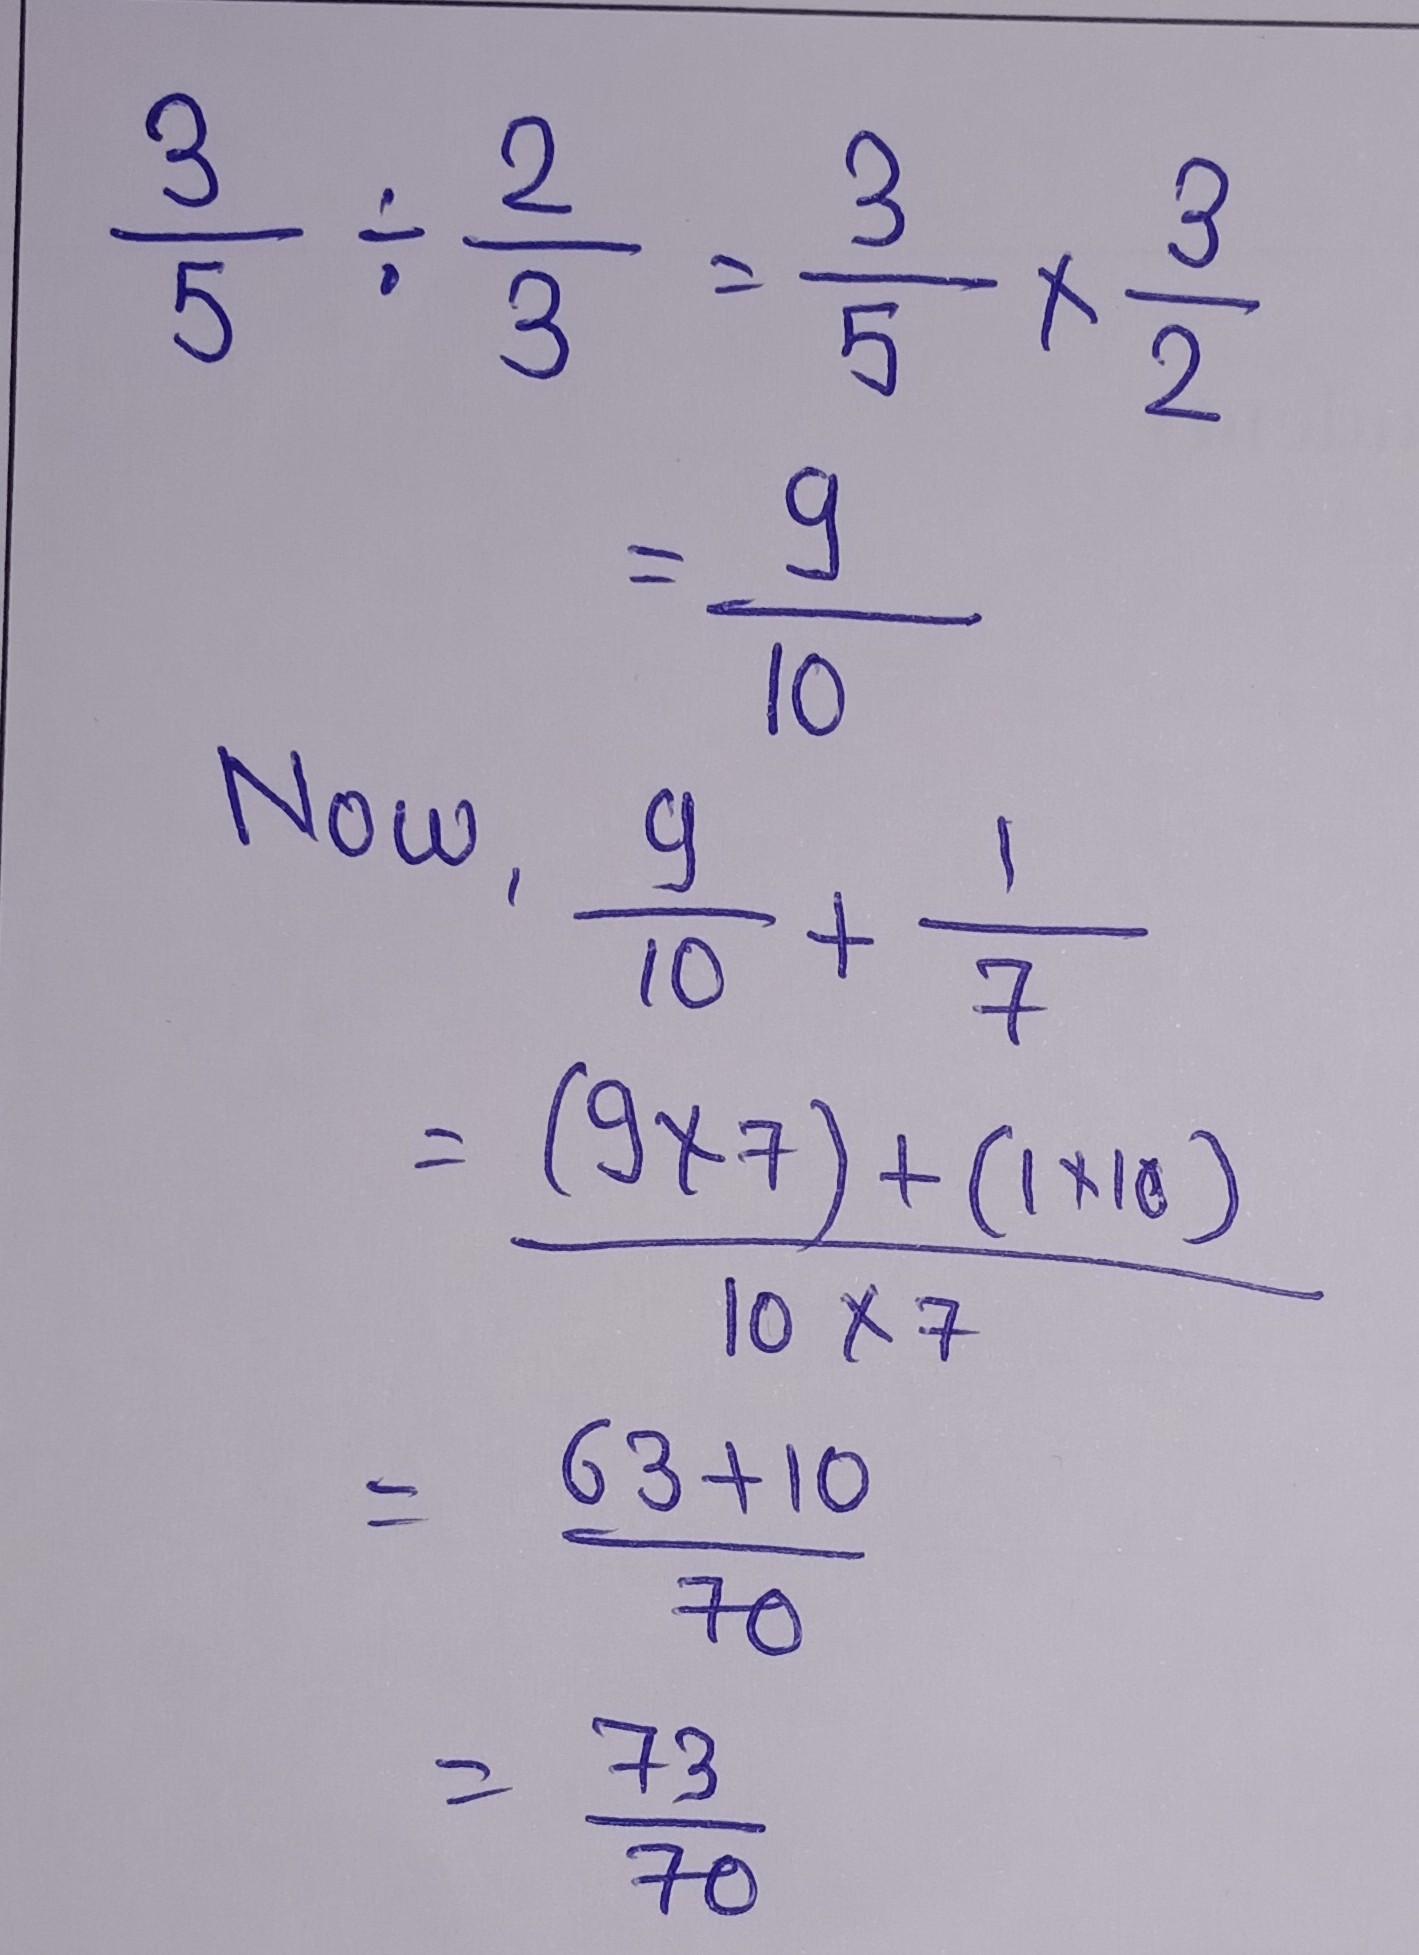 3/5 ÷ 2/3 = 3/5 × 3/2
= 9/10
Now, 9/10 + 1/7
= (9×7) + (1×10) / 10 × 7
= 63+10 / 70
= 73/70